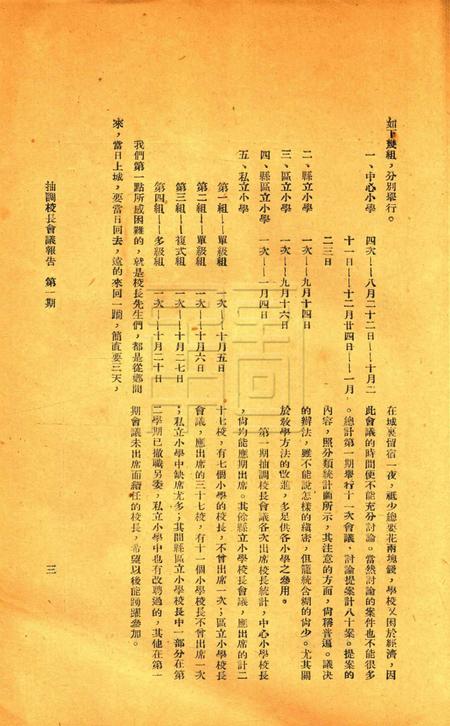 如下幾組，分別舉行。
一、中心小學　四次——八月二十二日——十月二
十一日——十二月廿四日——一月
二三日
二、縣立小學　一次——九月十四日
三、區立小學　一次——九月十六日
四、縣區立小學　一次——一月四日
五、私立小學
第一組——單級組　一次——十月五日
第二組——單級組　一次——十月六日
第三組——複式組　一次——十月二七日
第四組——多級組　一次——十月二十日
我們第一點所感困難的，就是校長先生們，都是從鄉間
來，當日上城，要當日回去，遠的來回一蹓，簡直要三天，
在城裏留宿一夜，祇少總要花兩塊錢，學校又困於經濟，因
此會議的時間便不能充分討論。當然討論的案件也不能很多
。總計第一期舉行十一次會議，討論提案計八十案。提案的
內容，照分類統計圖所示，其注意的方面，尙稱普遍。議決
的辦法，雖不能說怎樣的縝密，但籠統含糊的尙少。尤其關
於敎學方法的改進，多足供各小學之參用。
第一期抽調校長會議各次出席校長統計，中心小學校長
，尙均能應期出席。其餘縣立小學校長會議，應出席的計二
十七校，有七個小學的校長，不曾出席一次；區立小學校長
會議，應出席的三十七校，有十一個小學校長不曾出席一次
；私立小學中缺席尤多；其間縣區立小學校長中一部分在第
二學期已撤職另委，私立小學中也有改聘過的，其他在第一
期會議未出席而續任的校長，希望以後能踴躍參加。
抽調校長會議報告　第一期
三